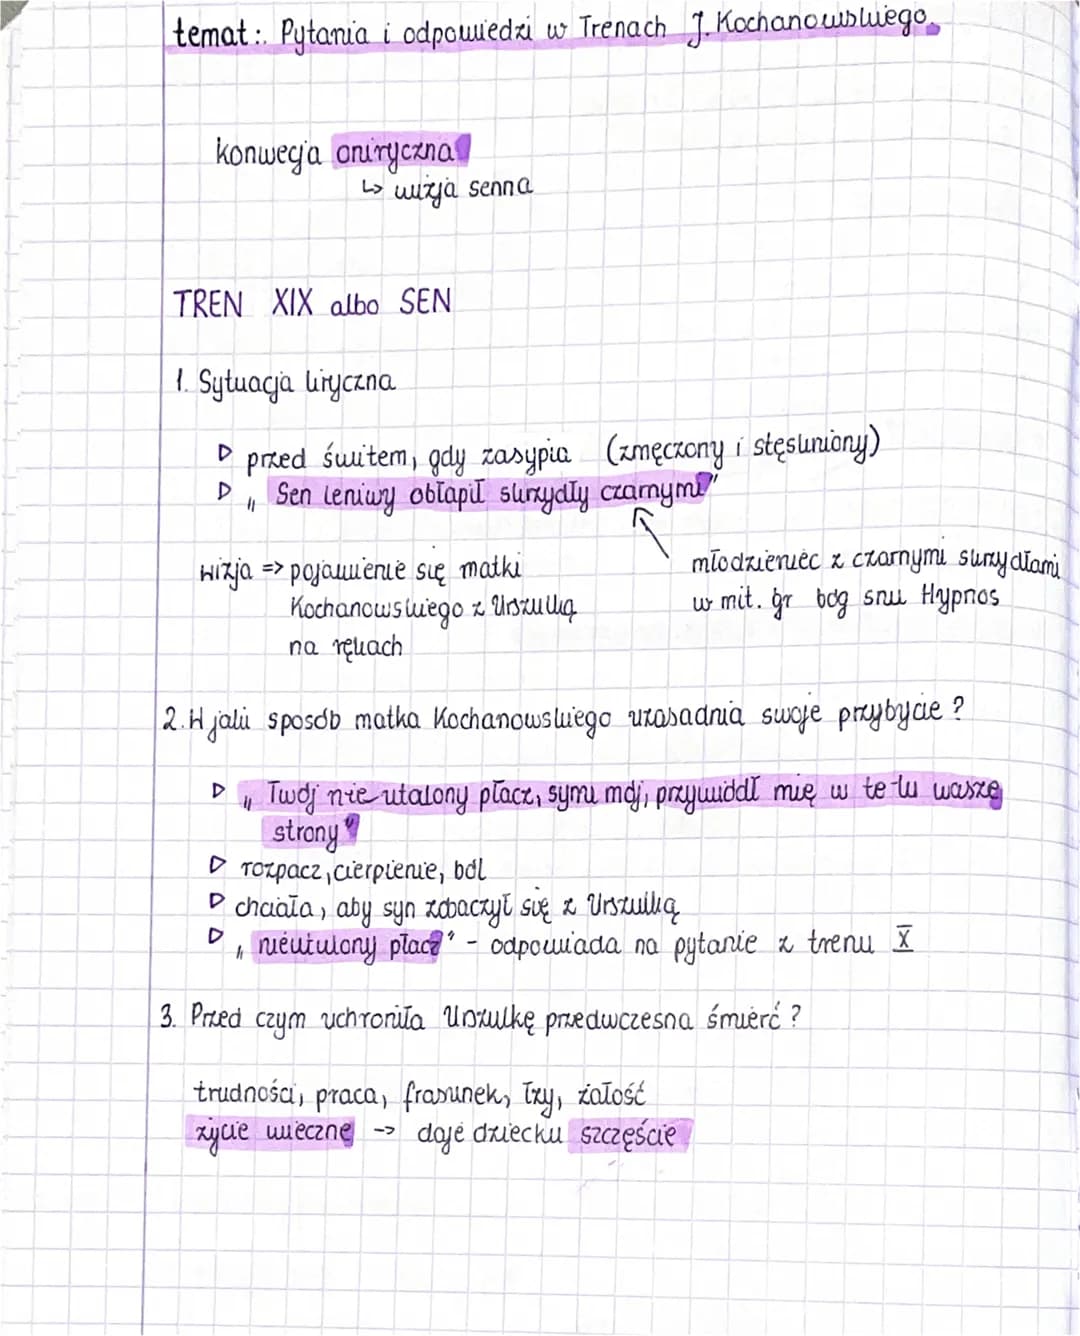 temat: Pytania i odpowiedzi w Trenach J. Kochanowskiego.
konwecja oniryczna
↳ wizja senna
TREN XIX albo SEN
1. Sytuacja liryczna
▷ przed świtem, gdy zasypia (zmęczony i stęskniony)
▷ „Sen leniwy obłapił skrzydły czarnymi"
wizja => pojawienie się matki
Kochanowskiego z Urszulką
na rękach
młodzieniec z czarnymi skrzydłami
w mit. gr bóg snu Hypnos
2. W jaki sposób matka Kochanowskiego uzasadnia swoje przybycie?
▷ „Twój nieutulony płacz, synu mój, przywiódł mię w te tu wasze
strony"
▷ rozpacz, cierpienie, ból
▷ chciała, aby syn zobaczył się z Urszulką
▷ „nieutulony płacz" - odpowiada na pytanie z trenu X
3. Przed czym uchroniła Urszulkę przedwczesna śmierć?
trudności, praca, frasunek, łzy, żałość
życie wieczne -> daje dziecku szczęście